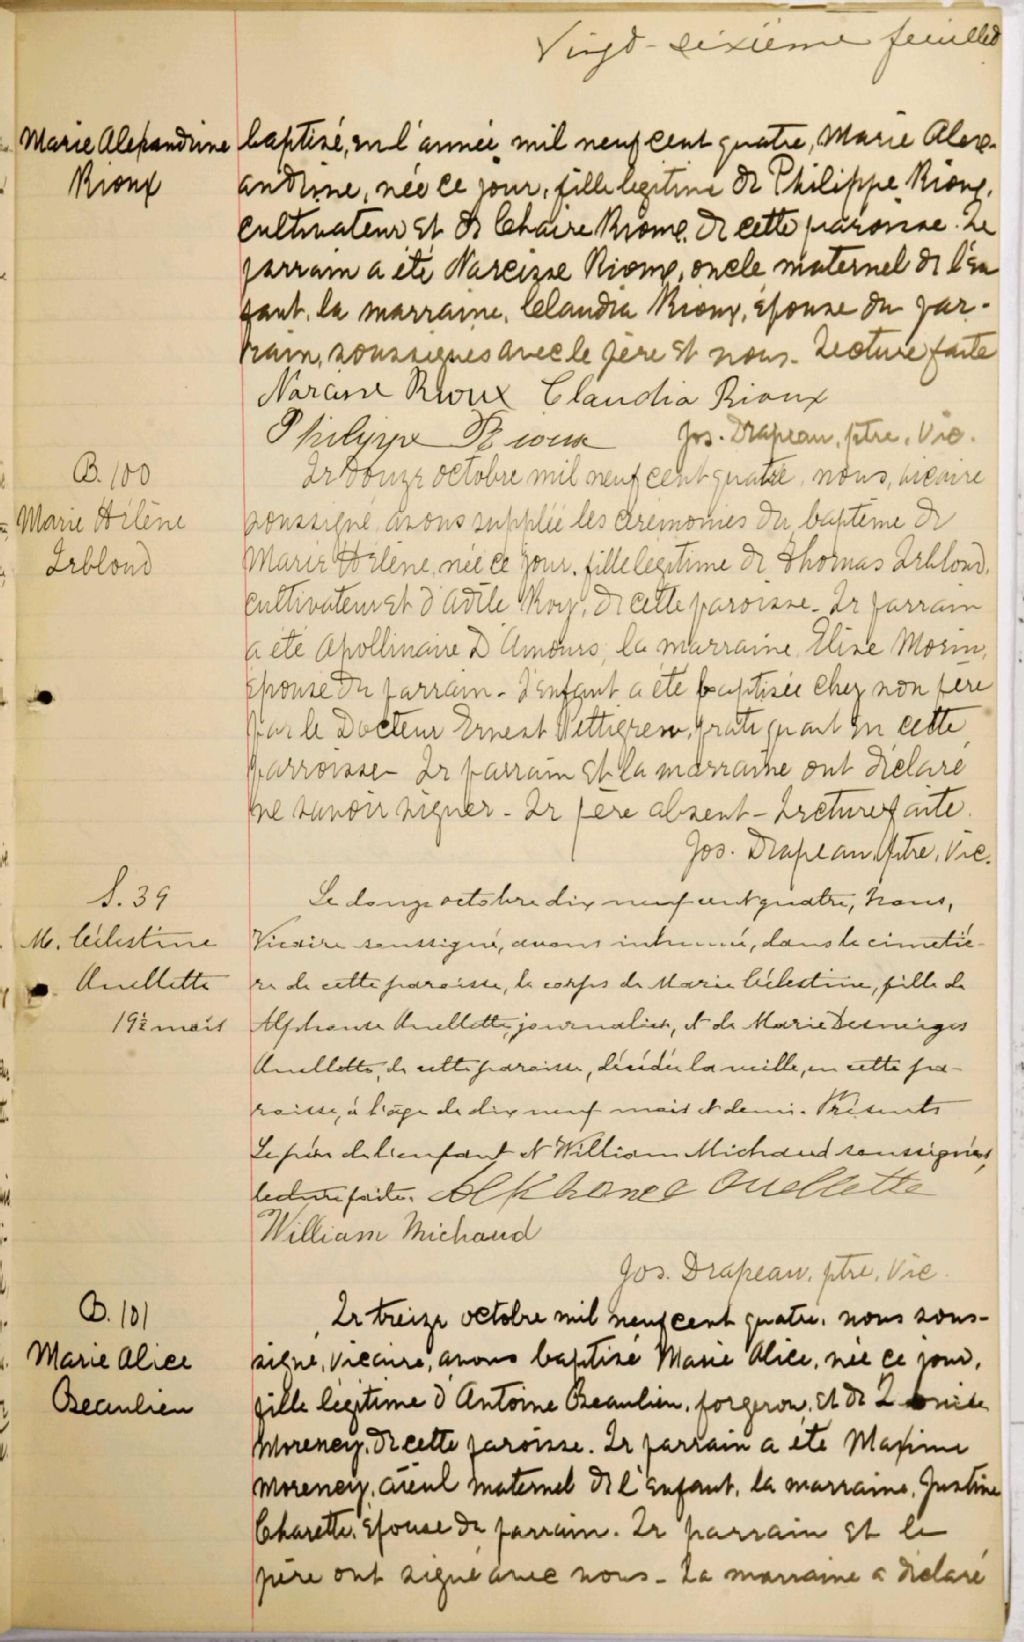 Vingt-sixième feuillet
Marie Alexandrine
Rioux
baptisé, en l'année mil neuf cent quatre, Marie Alex-
andrine, née ce jour, fille legitime de Philippe Rioux,
cultivateur et de Claire Rioux, de cette paroisse. Le
parrain a été Narcisse Rioux, oncle maternel de l'en
fant, la marraine, Claudia Rioux, épouse du par-
rain, soussignés avec le père et nous. Lecture faite
Narcisse Rioux Claudia Rioux
Philippe Rioux Jos. Drapeau, ptre, Vic.
B. 100
Marie Hélène
Leblond
Le douze octobre mil neuf cent quatre, nous, vicaire
soussigné, avons suppléé les cérémonies du baptême de
Marie Hélène, née ce jour, fille legitime de Thomas Leblond,
cultivateur et d'Adèle Roy, de cette paroisse - Le parrain
a été Apollinaire D'Amours, la marraine, Elise Morin,
épouse du parrain - L'enfant a été baptisée chez son père
par le Docteur Ernest Pettigrew, pratiquant en cette
parroisse - Le parrain et la marraine ont déclaré
ne savoir signer - Le père absent - Lecture faite.
Jos. Drapeau, ptre, Vic.
S. 39
M. Célestine
Ouellette
19½ mois
Le douze octobre dix neuf cent quatre, Nous,
Vicaire soussigné, avons inhumé, dans le cimetiè-
re de cette paroisse, le corps de Marie Célestine, fille de
Alphonse Ouellette, journalier, et de Marie Desneiges
Ouellette, de cette paroisse, décédée la veille, en cette pa-
roisse, à l'âge de dix neuf mois et demi. Présents
Le père de l'enfant et William Michaud soussignés,
lecture faite. Alphonse Ouellette
William Michaud
Jos. Drapeau, ptre, Vic.
B. 101
Marie Alice
Beaulieu
Le treize octobre mil neuf cent quatre, nous sous-
signé, Vicaire, avons baptisé Marie Alice, née ce jour,
fille légitime d'Antoine Beaulieu, forgeron, et de Louise
Morency, de cette paroisse. Le parrain a été Maxime
Morency, aïeul maternel de l'enfant, la marraine, Justine
Charette, épouse du parrain. Le parrain et le
père ont signé avec nous - La marraine a déclaré